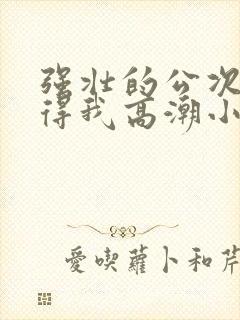 强壮的公次
得我高潮小
愛喫蘿卜和芹